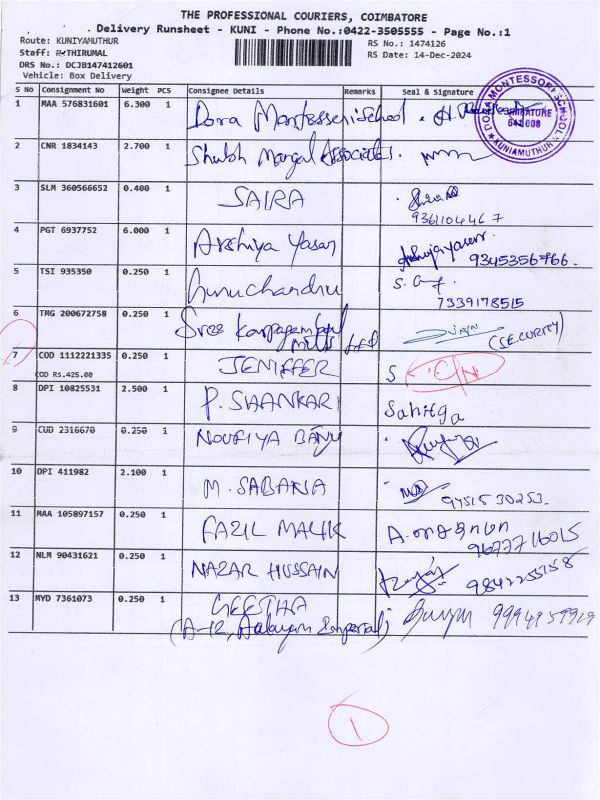 THE PROFESSIONAL COURIERS, COIMBATORE
Delivery Runsheet - KUNI - Phone No.:0422-3505555 - Page No.:1
Route: KUNIYAMUTHUR
RS No.: 1474126
Staff: N.THIRUMAL
RS Date: 14-Dec-2024
DRS No.: DCJB147412601
Vehicle: Box Delivery
S No Consignment No Weight PCS Consignee Details Remarks Seal & Signature
1 MAA 576831601 6.300 1 Dora Montessori School. H.
DORA MONTESSORI SCHOOL COIMBATORE 641 008 KUNIAMUTHUR
2 CNR 1834143 2.700 1 Shubh Mangal Associates.
3 SLM 360566652 0.400 1 SAIRA
9361104467
4 PGT 6937752 6.000 1 Arshiya Yasar
9345356766.
5 TSI 935350 0.250 1 Guruchandru
7339178515
6 TRG 200672758 0.250 1 Sree Karpagambal
mills Ltd (SECURITY)
7 COD 1112221335 0.250 1 JENIFFER S
COD RS.425.00
8 DPI 10825531 2.500 1 P. SHANKARI Sahitya
9 CUD 2316670 0.250 1 NOUFIYA BANU
10 DPI 411982 2.100 1 M. SABANA
9751530253.
11 MAA 105897157 0.250 1 FAZIL MALIK
9677716015
12 NLM 90431621 0.250 1 NAZAR HUSSAIN 9842255158
13 MYD 7361073 0.250 1 GEETHA 9994959929
(A-12, Aalayam Imperial)
1